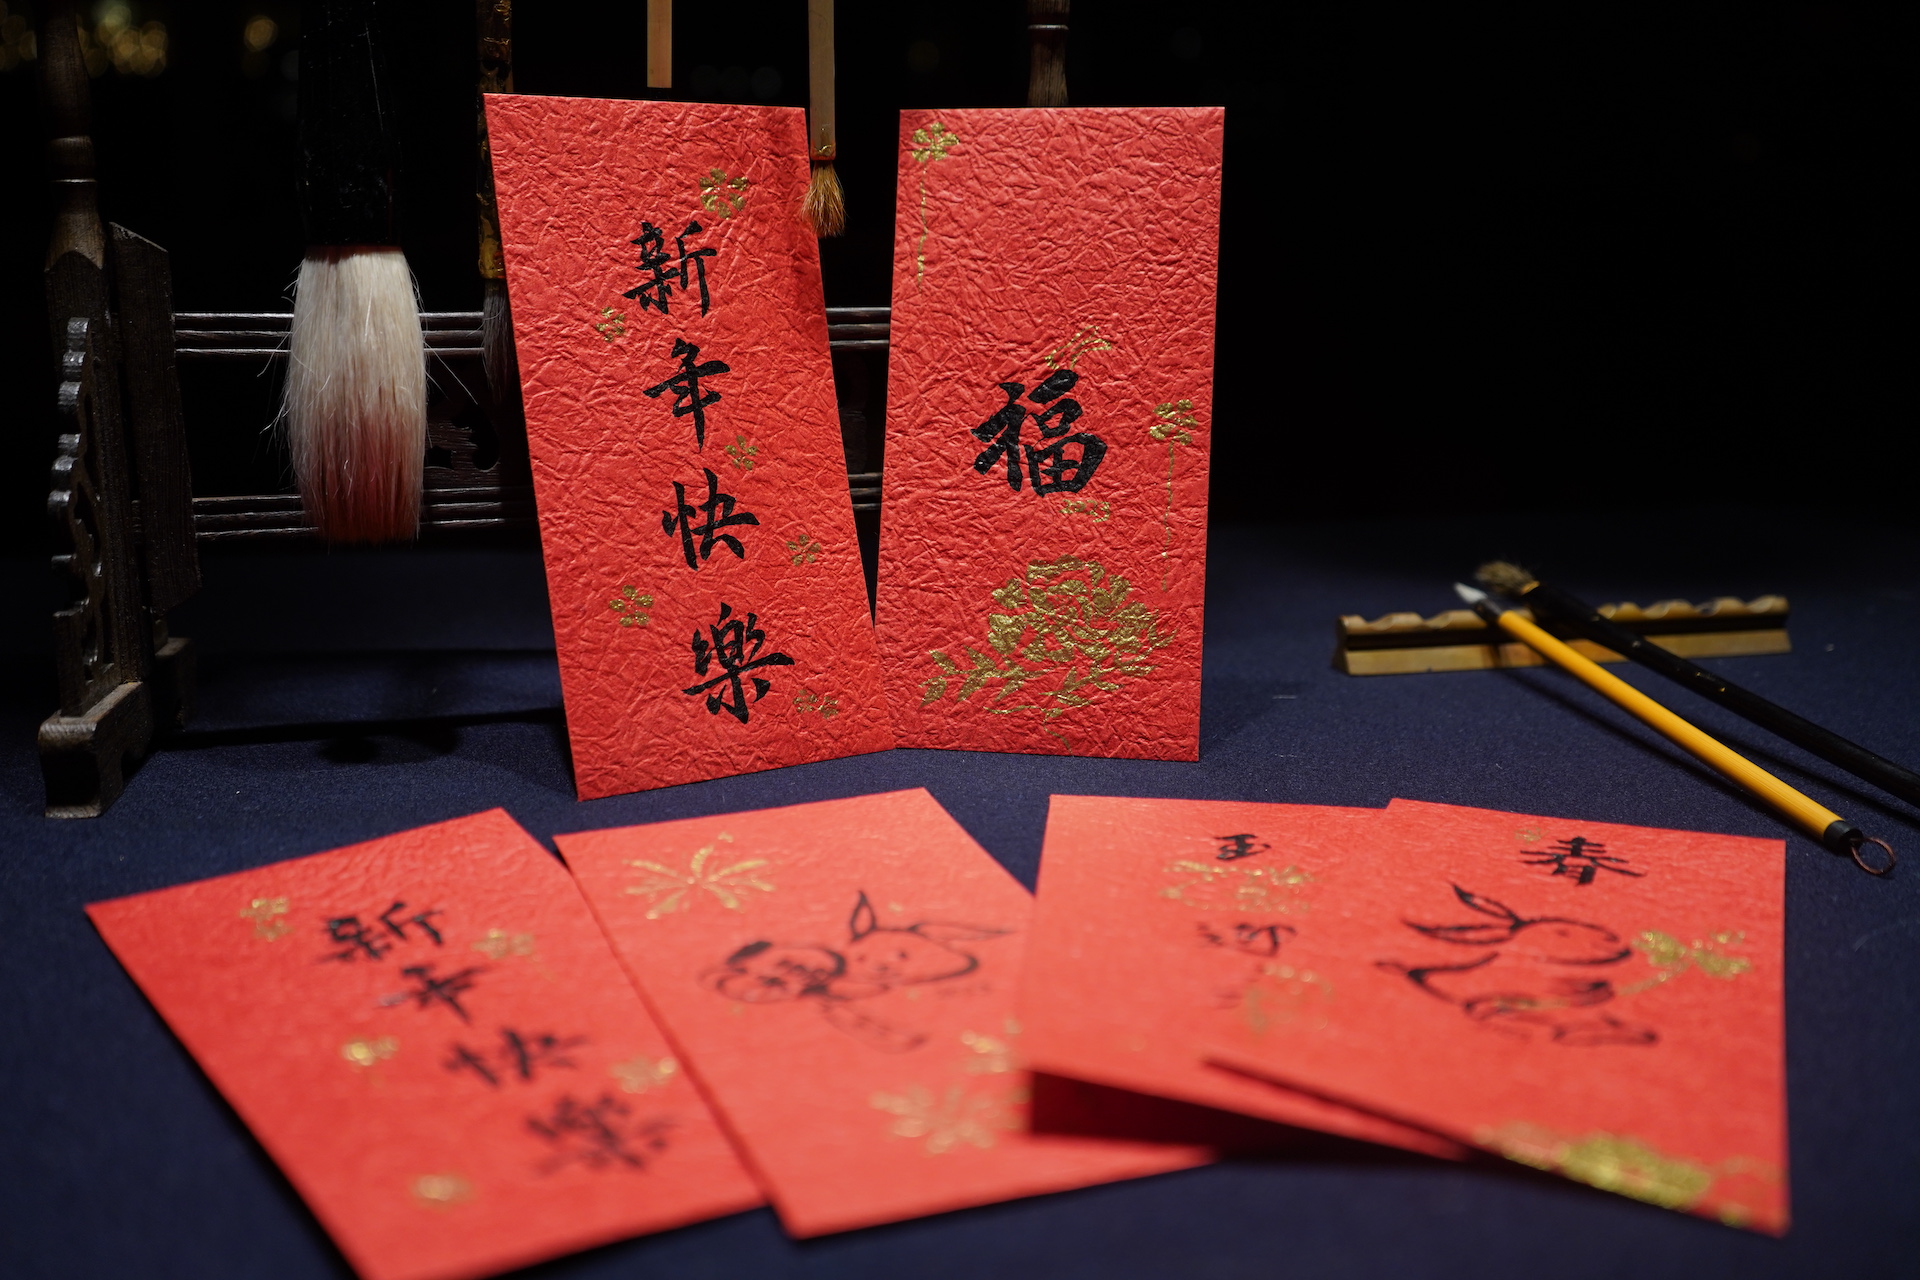 新年快樂
福
2023
新年快樂
玉
春